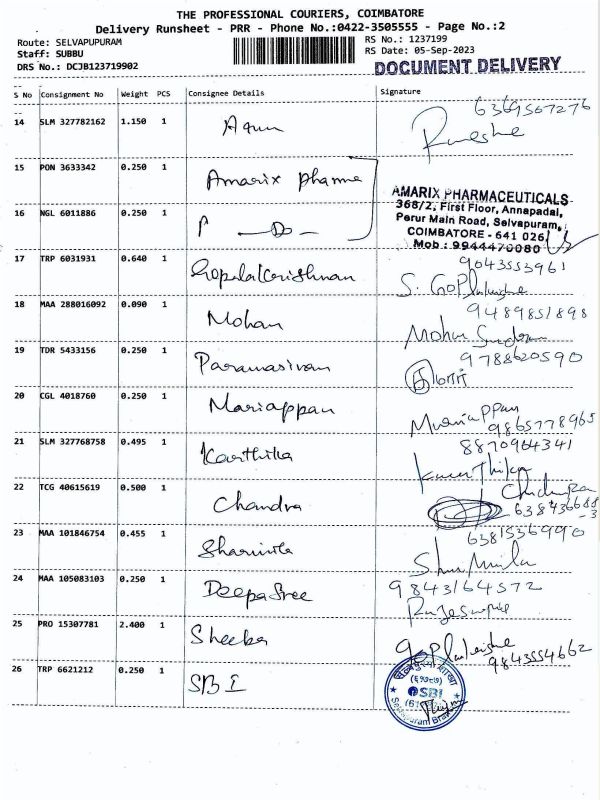 THE PROFESSIONAL COURIERS, COIMBATORE
Delivery Runsheet - PRR - Phone No.:0422-3505555 - Page No.:2
Route: SELVAPUPURAM RS No.: 1237199
Staff: SUBBU RS Date: 05-Sep-2023
DRS No.: DCJB123719902 DOCUMENT DELIVERY
S No Consignment No Weight PCS Consignee Details Signature
6369567276
14 SLM 327782162 1.150 1 Arun
15 PON 3633342 0.250 1 Amarix Pharma
AMARIX PHARMACEUTICALS
368/2, First Floor, Annapadai,
Perur Main Road, Selvapuram,
COIMBATORE - 641 026
Mob : 9944470080
16 NGL 6011886 0.250 1 P — Do —
17 TRP 6031931 0.640 1 Gopalakrishnan 9043553961
S. GoPlakrishn
18 MAA 288016092 0.090 1 Mohan 9489851898
Mohan
19 TDR 5433156 0.250 1 Paramasivam 9788620590
20 CGL 4018760 0.250 1 Mariappan Mariappan
9865778965
21 SLM 327768758 0.495 1 Karthika 8870964341
KarThika
22 TCG 40615619 0.500 1 Chandra
23 MAA 101846754 0.455 1 Sharmila 6381536990
Sharmila
24 MAA 105083103 0.250 1 DeepaSree 9843164572
25 PRO 15307781 2.400 1 Sheeba 9843554662
26 TRP 6621212 0.250 1 SBI
SBI